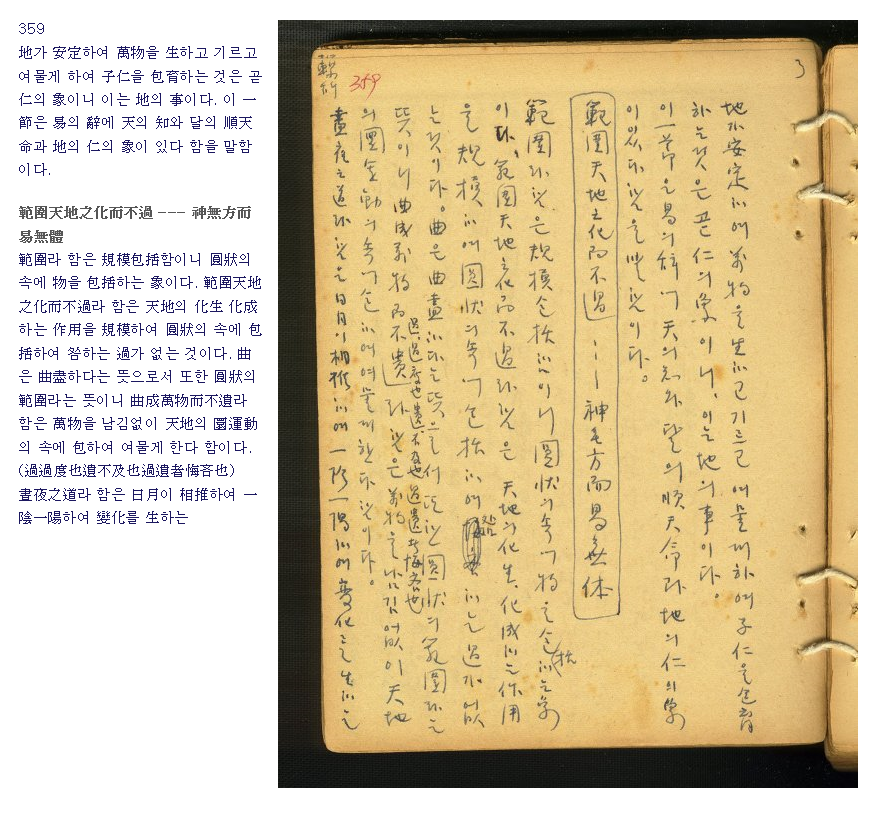 359
地가 安定하여 萬物을 生하고 기르고
여물게 하여 子仁을 包育하는 것은 곧
仁의 象이니 이는 地의 事이다. 이 一
節은 易의 辭에 天의 知와 달의 順天
命과 地의 仁의 象이 있다 함을 말함
이다.
範圍天地之化而不過 --- 神無方而
易無體
範圍라 함은 規模包括함이니 圓狀의
속에 物을 包括하는 象이다. 範圍天地
之化而不過라 함은 天地의 化生 化成
하는 作用을 規模하여 圓狀의 속에 包
括하여 咎하는 過가 없는 것이다. 曲
은 曲盡하다는 뜻으로서 또한 圓狀의
範圍라는 뜻이니 曲成萬物而不遺라
함은 萬物을 남김없이 天地의 圜運動
의 속에 包하여 여물게 한다 함이다.
(過過度也遺不及也過遺者悔吝也)
晝夜之道라 함은 日月이 相推하여 一
陰一陽하여 變化를 生하는
3
359
地가 安定하여 萬物을 生하고 기르고 여물게 하여 子仁을 包育
하는것은 곧 仁의 象이니, 이는 地의 事이다.
이 一節은 易의 辞에 天의 知와 달의 順天命과 地의 仁의 象
이 있다 함을 말함이다.
範囲天地之化而不過 --- 神无方而易無体
範圍라 함은 規模包括함이니 圓狀의 속에 物을 包括하는 象
이다. 範囲天地之化而不過라 함은 天地의 化生, 化成하는 作用
을 規模하여 圓狀의 속에 包括하여 하는 過가 없
는것이다. 曲은 曲盡하다는 뜻으로서 또한 圓狀의 範圍라는
過過度也遺不及也過遺者悔吝也
뜻이니 曲成萬物而不遺라 함은 萬物을 남김없이 天地
의 圜運動의 속에 包하여 여물게 한다 함이다.
晝夜之道라 함은 日月이 相推하여 一陰一陽하여 變化를 生하는